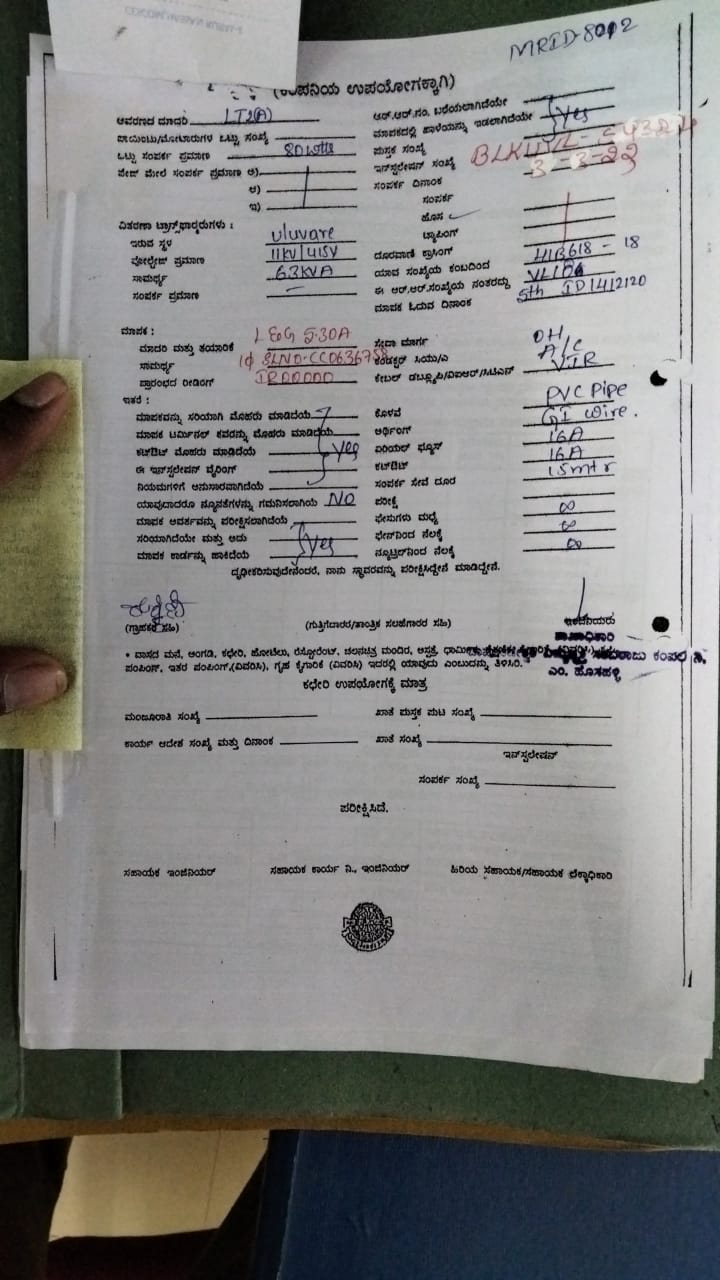 MRID-8012
(ಕಂಪನಿಯ ಉಪಯೋಗಕ್ಕಾಗಿ)
ಆವರಣದ ಮಾದರಿ LT2(A)
ಆರ್.ಆರ್.ನಂ. ಬರೆಯಲಾಗಿದೆಯೇ
ಮಾಪಕದಲ್ಲಿ ಹಾಳೆಯನ್ನು ಇಡಲಾಗಿದೆಯೇ Yes
ಪಾಯಿಂಟು/ಮೋಟಾರುಗಳ ಒಟ್ಟು ಸಂಖ್ಯೆ
ಪುಸ್ತಕ ಸಂಖ್ಯೆ
ಒಟ್ಟು ಸಂಪರ್ಕ ಪ್ರಮಾಣ 80 watts
ಇನ್‌ಸ್ಟಲೇಷನ್ ಸಂಖ್ಯೆ
ಪೇಜ್ ಮೇಲೆ ಸಂಪರ್ಕ ಪ್ರಮಾಣ ಅ)
ಸಂಪರ್ಕ ದಿನಾಂಕ 3-3-22
ಆ)
ಸಂಪರ್ಕ
ಇ)
ಹೊಸ
ಟ್ಯಾಪಿಂಗ್
ವಿತರಣಾ ಟ್ರಾನ್ಸ್‌ಫಾರ್ಮರುಗಳು :
ಇರುವ ಸ್ಥಳ uluvare
ದೂರವಾಣಿ ಕ್ರಾಸಿಂಗ್
ವೋಲ್ಟೇಜ್ ಪ್ರಮಾಣ 11KV/415V
ಯಾವ ಸಂಖ್ಯೆಯ ಕಂಬದಿಂದ
ಸಾಮರ್ಥ್ಯ 63KVA
ಈ ಆರ್.ಆರ್.ಸಂಖ್ಯೆಯ ನಂತರದ್ದು
ಸಂಪರ್ಕ ಪ್ರಮಾಣ —
ಮಾಪಕ ಓದುವ ದಿನಾಂಕ 5th
ಮಾಪಕ :
ಮಾದರಿ ಮತ್ತು ತಯಾರಿಕೆ L&G 5-30A
ಸೇವಾ ಮಾರ್ಗ OH
ಸಾಮರ್ಥ್ಯ 1ф SLNO-CC0636758
ಕಂಡಕ್ಟರ್ ಸಿಯು/ಎ A/C
ಪ್ರಾರಂಭದ ರೀಡಿಂಗ್ IR00000
ಕೇಬಲ್ ಡಬ್ಲ್ಯೂಪಿ/ವಿಐಆರ್/ಸಿಟಿಎಸ್ VIR
ಇತರೆ :
ಮಾಪಕವನ್ನು ಸರಿಯಾಗಿ ಮೊಹರು ಮಾಡಿದೆಯೆ
ಕೊಳವೆ PVC Pipe
ಮಾಪಕ ಟರ್ಮಿನಲ್ ಕವರನ್ನು ಮೊಹರು ಮಾಡಿದೆಯೆ
ಆರ್ಥಿಂಗ್ GI wire.
ಕಟ್‌ಔಟ್ ಮೊಹರು ಮಾಡಿದೆಯೆ Yes
ಏರಿಯಲ್ ಫ್ಯೂಸ್ 16A
ಈ ಇನ್‌ಸ್ಟಲೇಷನ್ ವೈರಿಂಗ್
ಕಟ್‌ಔಟ್ 16A
ನಿಯಮಗಳಿಗೆ ಅನುಸಾರವಾಗಿದೆಯೆ
ಸಂಪರ್ಕ ಸೇವೆ ದೂರ 15mtr
ಯಾವುದಾದರೂ ನ್ಯೂನತೆಗಳನ್ನು ಗಮನಿಸಲಾಗಿಯೆ NO
ಪರೀಕ್ಷೆ
ಮಾಪಕ ಆವರ್ತವನ್ನು ಪರೀಕ್ಷಿಸಲಾಗಿದೆಯೆ
ಫೇಸುಗಳು ಮಧ್ಯೆ ∞
ಸರಿಯಾಗಿದೆಯೇ ಮತ್ತು ಅದು Yes
ಫೇಸ್‌ನಿಂದ ನೆಲಕ್ಕೆ ∞
ಮಾಪಕ ಕಾರ್ಡನ್ನು ಹಾಕಿದೆಯೆ
ನ್ಯೂಟ್ರಲ್‌ನಿಂದ ನೆಲಕ್ಕೆ ∞
ದೃಢೀಕರಿಸುವುದೇನೆಂದರೆ, ನಾನು ಸ್ಥಾವರವನ್ನು ಪರೀಕ್ಷಿಸಿದ್ದೇನೆ ಮಾಡಿದ್ದೇನೆ.
(ಗ್ರಾಹಕರ ಸಹಿ) (ಗುತ್ತಿಗೆದಾರರ/ತಾಂತ್ರಿಕ ಸಲಹೆಗಾರರ ಸಹಿ) ಇಂಜಿನಿಯರು
ಶಾಖಾಧಿಕಾರಿ
• ವಾಸದ ಮನೆ, ಅಂಗಡಿ, ಕಛೇರಿ, ಹೋಟೆಲು, ರೆಸ್ಟೋರೆಂಟ್, ಚಲನಚಿತ್ರ ಮಂದಿರ, ಆಸ್ಪತ್ರೆ,
ಪಂಪಿಂಗ್, ಇತರ ಪಂಪಿಂಗ್,(ವಿವರಿಸಿ), ಗೃಹ ಕೈಗಾರಿಕೆ (ವಿವರಿಸಿ) ಇದರಲ್ಲಿ ಯಾವುದು ಎಂಬುದನ್ನು ತಿಳಿಸಿರಿ.
ಸರಬರಾಜು ಕಂಪನಿ ನಿ.
ಎಂ. ಹೊಸಹಳ್ಳಿ
ಕಛೇರಿ ಉಪಯೋಗಕ್ಕೆ ಮಾತ್ರ
ಮಂಜೂರಾತಿ ಸಂಖ್ಯೆ ಖಾತೆ ಪುಸ್ತಕ ಪುಟ ಸಂಖ್ಯೆ
ಕಾರ್ಯ ಆದೇಶ ಸಂಖ್ಯೆ ಮತ್ತು ದಿನಾಂಕ ಖಾತೆ ಸಂಖ್ಯೆ
ಇನ್‌ಸ್ಟಲೇಷನ್
ಸಂಪರ್ಕ ಸಂಖ್ಯೆ
ಪರೀಕ್ಷಿಸಿದೆ.
ಸಹಾಯಕ ಇಂಜಿನಿಯರ್ ಸಹಾಯಕ ಕಾರ್ಯ ನಿ., ಇಂಜಿನಿಯರ್ ಹಿರಿಯ ಸಹಾಯಕ/ಸಹಾಯಕ ಲೆಕ್ಕಾಧಿಕಾರಿ